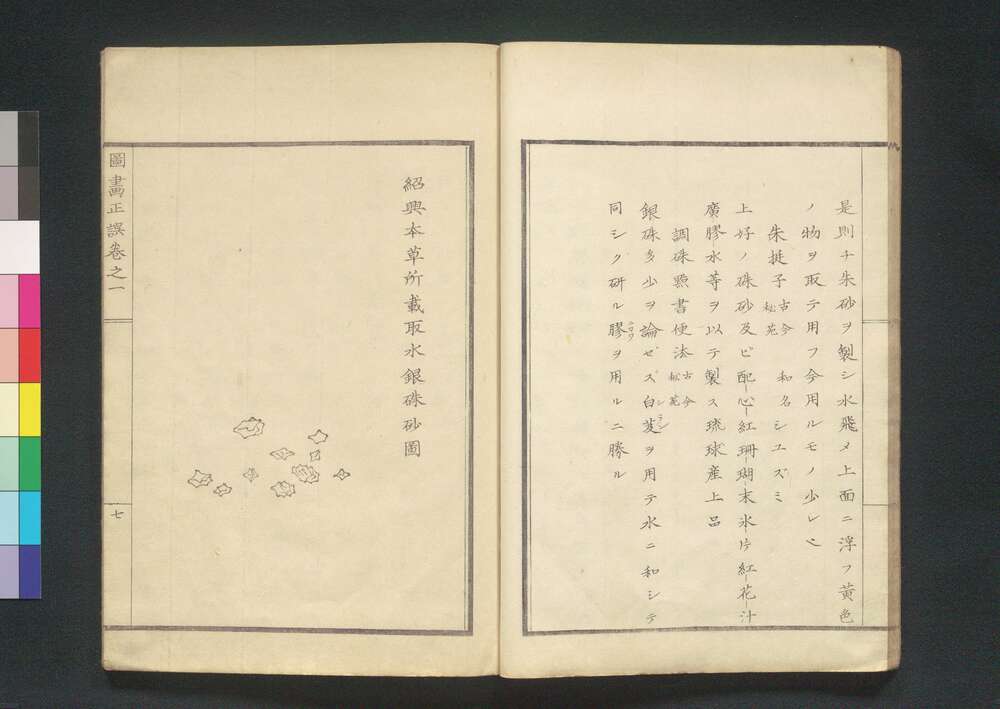 是則チ朱砂ヲ製シ水飛メ上面ニ浮フ黄色
ノ物ヲ取テ用フ今用ルモノ少レ
朱挺子 古今秘苑 和名シユズミ
上好ノ硃砂及ビ配心紅珊瑚末氷片紅花汁
廣膠水等ヲ以テ製ス琉球産上品
調硃點書便法 古今秘苑
銀硃多少ヲ論ゼズ白芨ヲ用テ水ニ和シテ
同シク研ル膠ヲ用ルニ勝ル
紹興本草所載取水銀硃砂圖
圖畵正誤卷之一
七